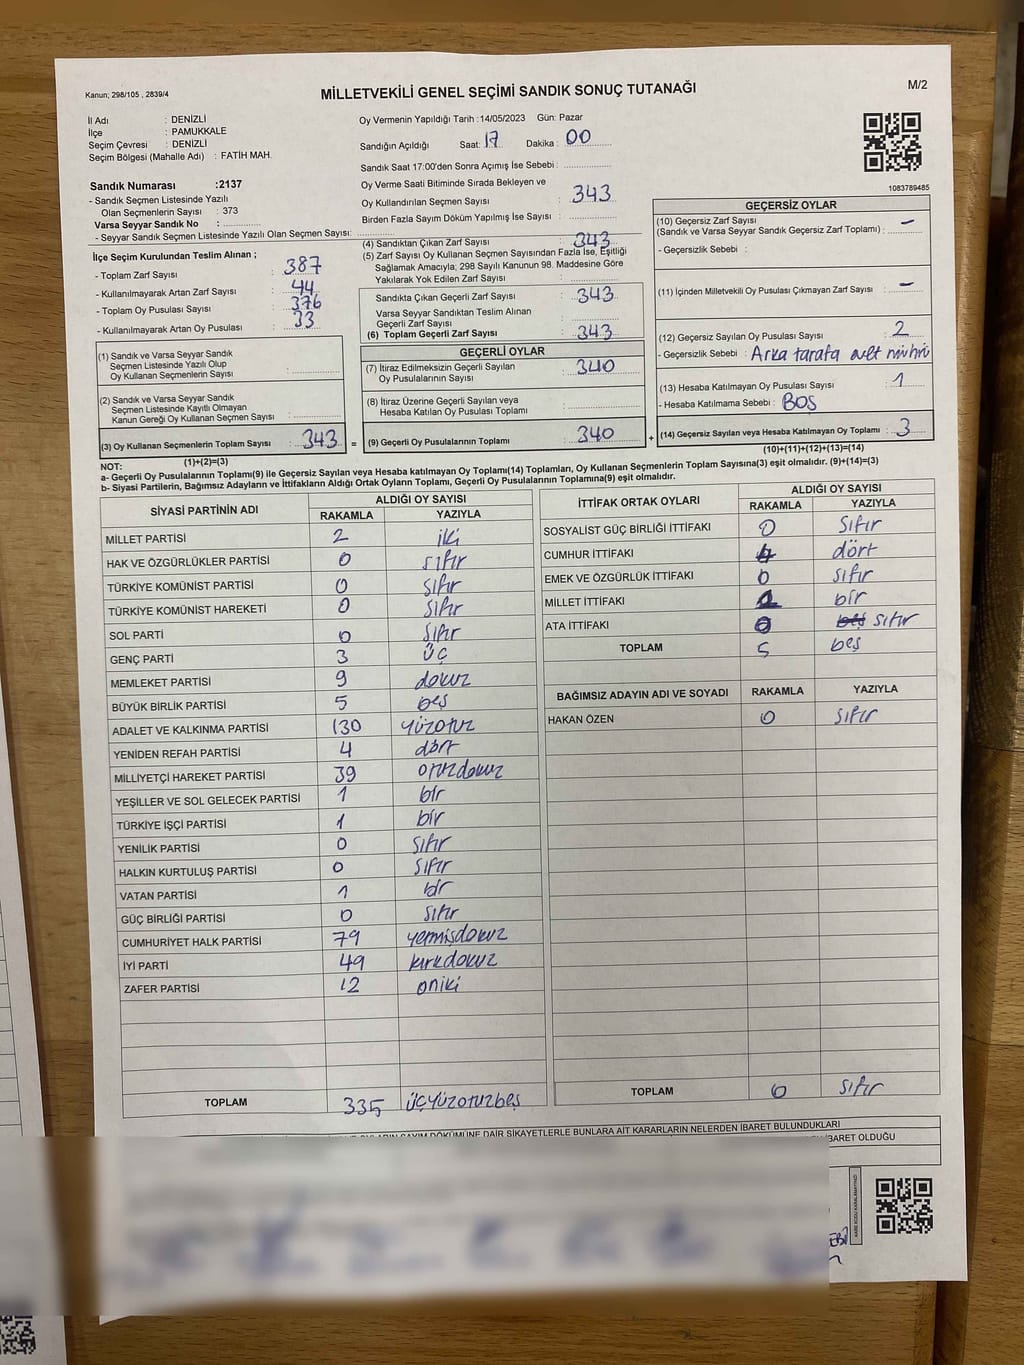 Kanun; 298/105 , 2839/4
MİLLETVEKİLİ GENEL SEÇİMİ SANDIK SONUÇ TUTANAĞI
M/2
İl Adı : DENİZLİ
İlçe : PAMUKKALE
Seçim Çevresi : DENİZLİ
Seçim Bölgesi (Mahalle Adı) : FATİH MAH.
Sandık Numarası :2137
- Sandık Seçmen Listesinde Yazılı
Olan Seçmenlerin Sayısı : 373
Varsa Seyyar Sandık No :
- Seyyar Sandık Seçmen Listesinde Yazılı Olan Seçmen Sayısı:
Oy Vermenin Yapıldığı Tarih :14/05/2023 Gün: Pazar
Sandığın Açıldığı Saat: 17 Dakika: 00
Sandık Saat 17:00'den Sonra Açımış İse Sebebi :
Oy Verme Saati Bitiminde Sırada Bekleyen ve
Oy Kullandırılan Seçmen Sayısı : 343
Birden Fazla Sayım Döküm Yapılmış İse Sayısı :
1083789485
İlçe Seçim Kurulundan Teslim Alınan ;
- Toplam Zarf Sayısı : 387
- Kullanılmayarak Artan Zarf Sayısı : 44
- Toplam Oy Pusulası Sayısı : 376
- Kullanılmayarak Artan Oy Pusulası : 33
(1) Sandık ve Varsa Seyyar Sandık
Seçmen Listesinde Yazılı Olup
Oy Kullanan Seçmenlerin Sayısı :
(2) Sandık ve Varsa Seyyar Sandık
Seçmen Listesinde Kayıtlı Olmayan
Kanun Gereği Oy Kullanan Seçmen Sayısı :
(3) Oy Kullanan Seçmenlerin Toplam Sayısı : 343 =
(1)+(2)=(3)
(4) Sandıktan Çıkan Zarf Sayısı : 343
(5) Zarf Sayısı Oy Kullanan Seçmen Sayısından Fazla İse, Eşitliği
Sağlamak Amacıyla; 298 Sayılı Kanunun 98. Maddesine Göre
Yakılarak Yok Edilen Zarf Sayısı :
Sandıkta Çıkan Geçerli Zarf Sayısı : 343
Varsa Seyyar Sandıktan Teslim Alınan
Geçerli Zarf Sayısı :
(6) Toplam Geçerli Zarf Sayısı : 343
GEÇERLİ OYLAR
(7) İtiraz Edilmeksizin Geçerli Sayılan
Oy Pusulalarının Sayısı : 340
(8) İtiraz Üzerine Geçerli Sayılan veya
Hesaba Katılan Oy Pusulası Toplamı :
(9) Geçerli Oy Pusulalarının Toplamı : 340 +
GEÇERSİZ OYLAR
(10) Geçersiz Zarf Sayısı
(Sandık ve Varsa Seyyar Sandık Geçersiz Zarf Toplamı) : –
- Geçersizlik Sebebi :
(11) İçinden Milletvekili Oy Pusulası Çıkmayan Zarf Sayısı : –
(12) Geçersiz Sayılan Oy Pusulası Sayısı : 2
- Geçersizlik Sebebi : Arka tarafa
(13) Hesaba Katılmayan Oy Pusulası Sayısı : 1
- Hesaba Katılmama Sebebi : BOŞ
(14) Geçersiz Sayılan veya Hesaba Katılmayan Oy Toplamı : 3
(10)+(11)+(12)+(13)=(14)
NOT:
a- Geçerli Oy Pusulalarının Toplamı(9) ile Geçersiz Sayılan veya Hesaba katılmayan Oy Toplamı(14) Toplamları, Oy Kullanan Seçmenlerin Toplam Sayısına(3) eşit olmalıdır. (9)+(14)=(3)
b- Siyasi Partilerin, Bağımsız Adayların ve İttifakların Aldığı Ortak Oyların Toplamı, Geçerli Oy Pusulalarının Toplamına(9) eşit olmalıdır.
SİYASİ PARTİNİN ADI ALDIĞI OY SAYISI
RAKAMLA YAZIYLA
MİLLET PARTİSİ 2 iki
HAK VE ÖZGÜRLÜKLER PARTİSİ 0 sıfır
TÜRKİYE KOMÜNİST PARTİSİ 0 sıfır
TÜRKİYE KOMÜNİST HAREKETİ 0 sıfır
SOL PARTİ 0 sıfır
GENÇ PARTİ 3 üç
MEMLEKET PARTİSİ 9 dokuz
BÜYÜK BİRLİK PARTİSİ 5 beş
ADALET VE KALKINMA PARTİSİ 130 yüzotuz
YENİDEN REFAH PARTİSİ 4 dört
MİLLİYETÇİ HAREKET PARTİSİ 39 otuzdokuz
YEŞİLLER VE SOL GELECEK PARTİSİ 1 bir
TÜRKİYE İŞÇİ PARTİSİ 1 bir
YENİLİK PARTİSİ 0 sıfır
HALKIN KURTULUŞ PARTİSİ 0 sıfır
VATAN PARTİSİ 1 bir
GÜÇ BİRLİĞİ PARTİSİ 0 sıfır
CUMHURİYET HALK PARTİSİ 79 yetmişdokuz
İYİ PARTİ 49 kırkdokuz
ZAFER PARTİSİ 12 oniki
TOPLAM 335 üçyüzotuzbeş
İTTİFAK ORTAK OYLARI ALDIĞI OY SAYISI
RAKAMLA YAZIYLA
SOSYALİST GÜÇ BİRLİĞİ İTTİFAKI 0 sıfır
CUMHUR İTTİFAKI 4 dört
EMEK VE ÖZGÜRLÜK İTTİFAKI 0 sıfır
MİLLET İTTİFAKI 1 bir
ATA İTTİFAKI 0 beş sıfır
TOPLAM 5 beş
BAĞIMSIZ ADAYIN ADI VE SOYADI RAKAMLA YAZIYLA
HAKAN ÖZEN 0 sıfır
TOPLAM 0 sıfır
DÖKÜMÜNE DAİR ŞİKAYETLERLE BUNLARA AİT KARARLARIN NELERDEN İBARET BULUNDUKLARI
İBARET OLDUĞU